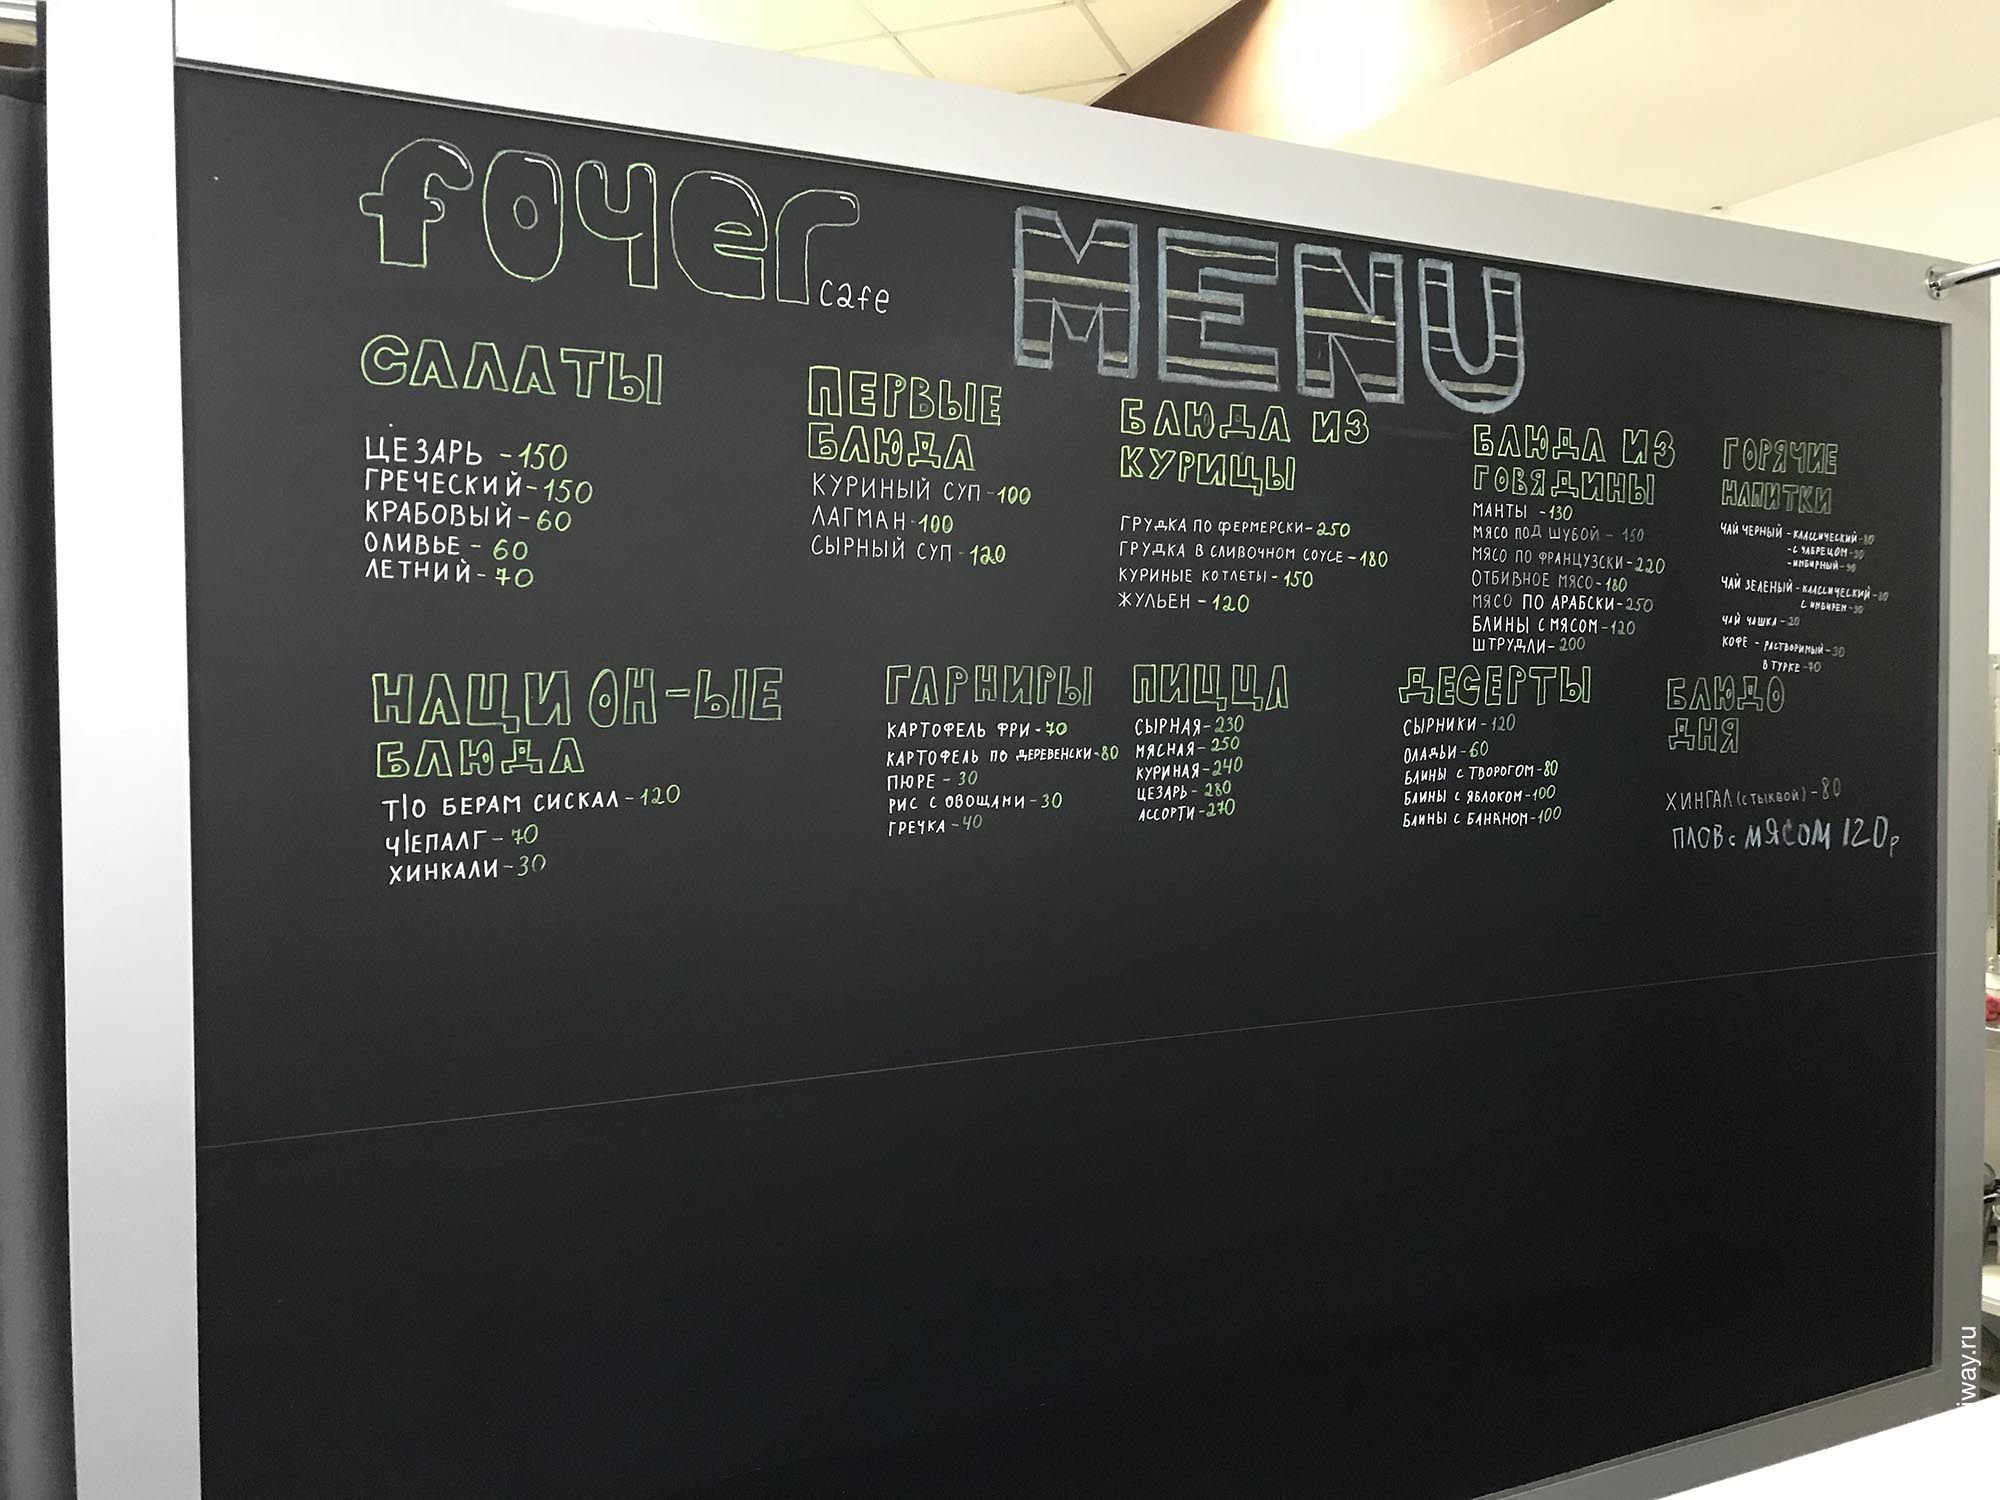 foyer
cafe
MENU
САЛАТЫ
ЦЕЗАРЬ - 150
ГРЕЧЕСКИЙ - 150
КРАБОВЫЙ - 60
ОЛИВЬЕ - 60
ЛЕТНИЙ - 70
ПЕРВЫЕ
БЛЮДА
КУРИНЫЙ СУП - 100
ЛАГМАН - 100
СЫРНЫЙ СУП - 120
БЛЮДА ИЗ
КУРИЦЫ
ГРУДКА ПО ФЕРМЕРСКИ - 250
ГРУДКА В СЛИВОЧНОМ СОУСЕ - 180
КУРИНЫЕ КОТЛЕТЫ - 150
ЖУЛЬЕН - 120
БЛЮДА ИЗ
ГОВЯДИНЫ
МАНТЫ - 130
МЯСО ПОД ШУБОЙ - 150
МЯСО ПО ФРАНЦУЗСКИ - 220
ОТБИВНОЕ МЯСО - 180
МЯСО ПО АРАБСКИ - 250
БЛИНЫ С МЯСОМ - 120
ШТРУДЛИ - 200
ГОРЯЧИЕ
НАПИТКИ
ЧАЙ ЧЕРНЫЙ - КЛАССИЧЕСКИЙ - 80
- С ЧАБРЕЦОМ - 90
- ИМБИРНЫЙ - 90
ЧАЙ ЗЕЛЕНЫЙ - КЛАССИЧЕСКИЙ - 80
С ИМБИРЕМ - 90
ЧАЙ ЧАШКА - 20
КОФЕ - РАСТВОРИМЫЙ - 30
В ТУРКЕ - 70
НАЦИОН-ЫЕ
БЛЮДА
ТIО БЕРАМ СИСКАЛ - 120
ЧIЕПАЛГ - 70
ХИНКАЛИ - 30
ГАРНИРЫ
КАРТОФЕЛЬ ФРИ - 70
КАРТОФЕЛЬ ПО ДЕРЕВЕНСКИ - 80
ПЮРЕ - 30
РИС С ОВОЩАМИ - 30
ГРЕЧКА - 40
ПИЦЦА
СЫРНАЯ - 230
МЯСНАЯ - 250
КУРИНАЯ - 240
ЦЕЗАРЬ - 280
АССОРТИ - 270
ДЕСЕРТЫ
СЫРНИКИ - 120
ОЛАДЬИ - 60
БЛИНЫ С ТВОРОГОМ - 80
БЛИНЫ С ЯБЛОКОМ - 100
БЛИНЫ С БАНАНОМ - 100
БЛЮДО
ДНЯ
ХИНГАЛ (с тыквой) - 80
ПЛОВ с МЯСОМ 120р
iway.ru